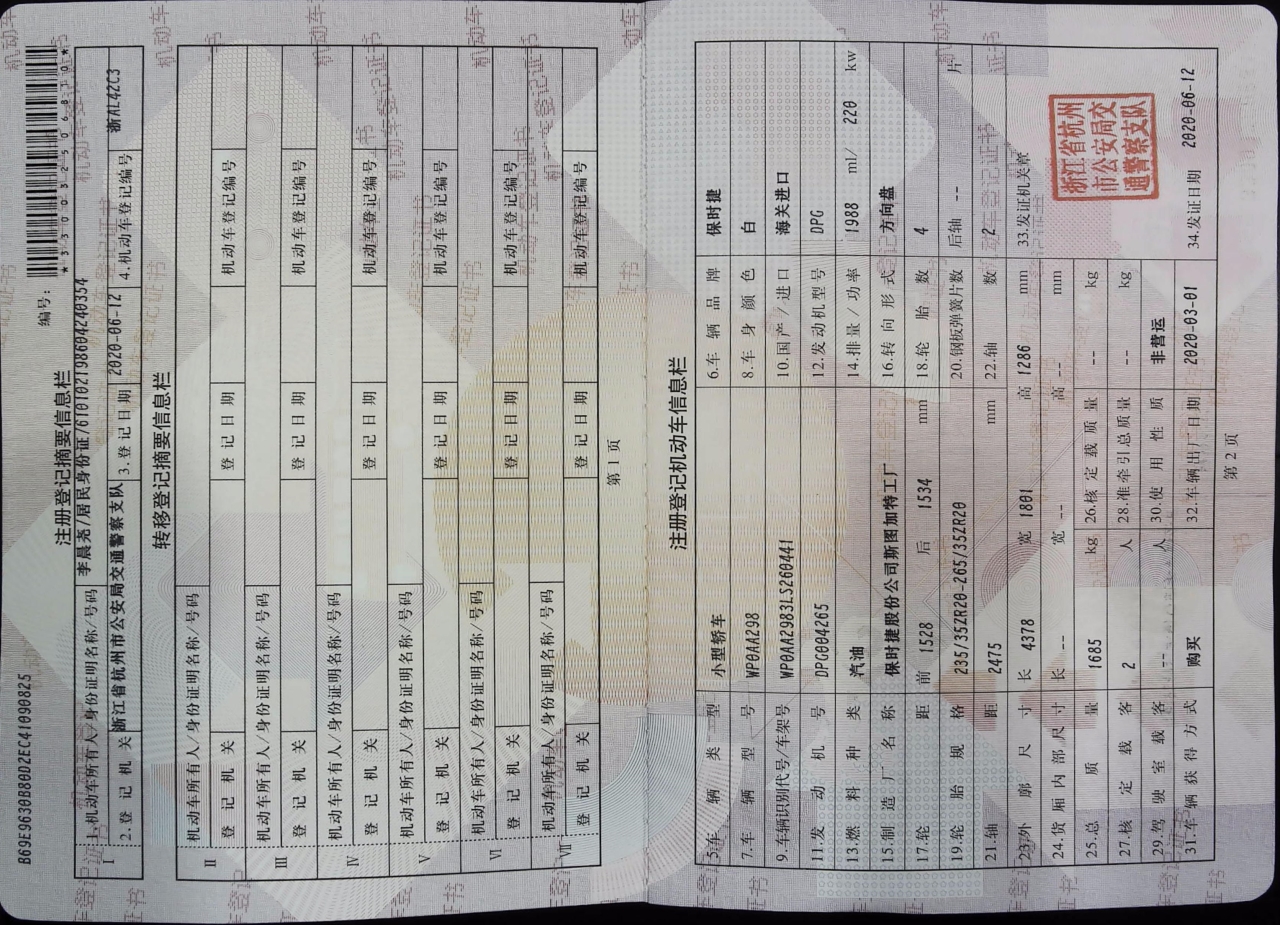 B69E9630B80D2EC41090825
编号：
*330032506810*
注册登记摘要信息栏
I
1.机动车所有人/身份证明名称/号码 李晨尧/居民身份证/610102198604240354
2.登记机关 浙江省杭州市公安局交通警察支队 3.登记日期 2020-06-12 4.机动车登记编号 浙AL42C3
转移登记摘要信息栏
II
机动车所有人/身份证明名称/号码
登记机关 登记日期 机动车登记编号
III
机动车所有人/身份证明名称/号码
登记机关 登记日期 机动车登记编号
IV
机动车所有人/身份证明名称/号码
登记机关 登记日期 机动车登记编号
V
机动车所有人/身份证明名称/号码
登记机关 登记日期 机动车登记编号
VI
机动车所有人/身份证明名称/号码
登记机关 登记日期 机动车登记编号
VII
机动车所有人/身份证明名称/号码
登记机关 登记日期 机动车登记编号
第1页
注册登记机动车信息栏
5.车辆类型 小型轿车 6.车辆品牌 保时捷
7.车辆型号 WP0AA298 8.车身颜色 白
9.车辆识别代号/车架号 WP0AA2983LS260441 10.国产/进口 海关进口
11.发动机号 DPG004265 12.发动机型号 DPG
13.燃料种类 汽油 14.排量/功率 1988 ml/ 220 kw
15.制造厂名称 保时捷股份公司斯图加特工厂 16.转向形式 方向盘
17.轮距 前 1528 后 1534 mm 18.轮胎数 4
19.轮胎规格 235/35ZR20-265/35ZR20 20.钢板弹簧片数 后轴 -- 片
21.轴距 2475 mm 22.轴数 2
23.外廓尺寸 长 4378 宽 1801 高 1286 mm 33.发证机关章
24.货厢内部尺寸 长 -- 宽 -- 高 -- mm
25.总质量 1685 kg 26.核定载质量 -- kg
27.核定载客 2 人 28.准牵引总质量 -- kg
29.驾驶室载客 -- 人 30.使用性质 非营运
31.车辆获得方式 购买 32.车辆出厂日期 2020-03-01 34.发证日期 2020-06-12
浙江省杭州
市公安局交
通警察支队
第2页